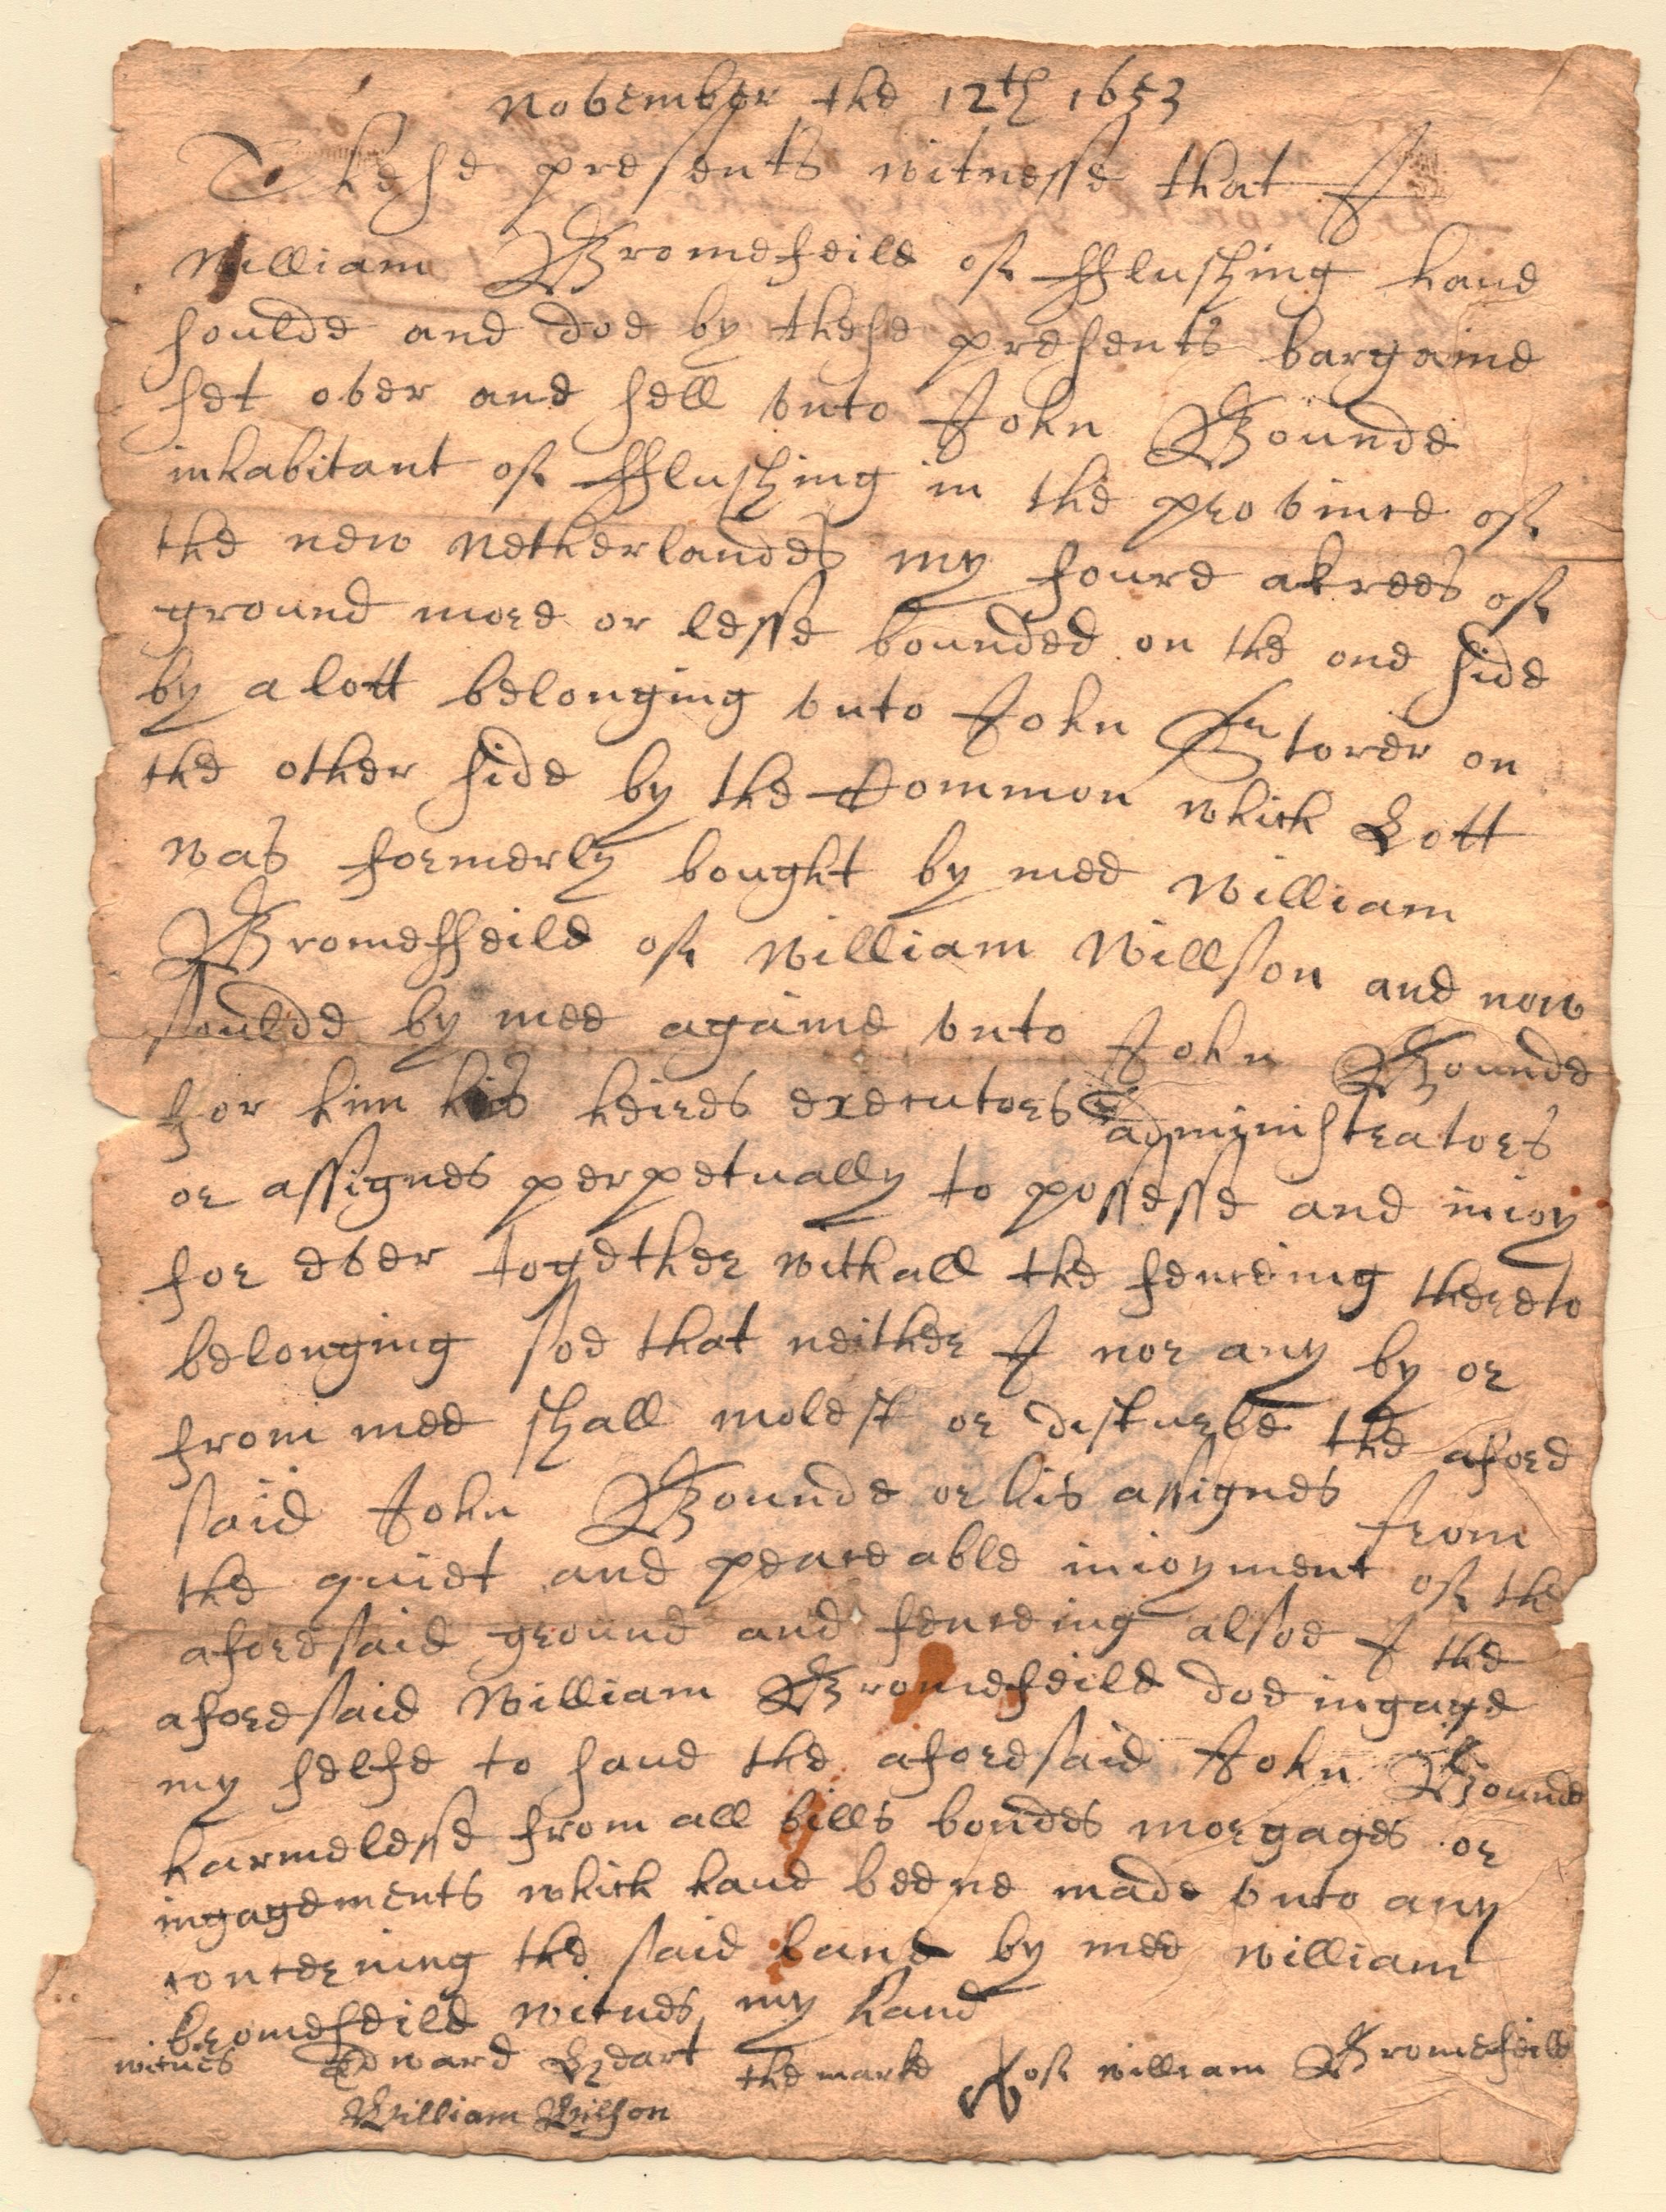 November the 12th 1653
These presents witnesse that I
William Bromefeild of fflushing have
soulde and doe by these presents bargaine
set over and sell vnto John Bounde
inhabitant of fflushing in the province of
the new Netherlandes my foure akrees of
ground more or lesse bounded on the one side
by a lott belonging vnto John Storer on
the other side by the Common which Lott
was formerly bought by mee William
Bromeffeild of William Willson and now
soulde by mee againe vnto John Bounde
for him his heires executores administratores
or assignes perpetually to possesse and inioy
for ever together withall the fenceing thereto
belonging soe that neither I nor any by or
from mee shall molest or disturbe the afore
said John Bounde or his assignes from
the quiet and peaceable inioyment of the
aforesaid ground and fenceing alsoe I the
aforesaid William Bromefeild doe ingage
my selfe to save the aforesaid John Bounde
harmelesse from all bills bondes morgages or
ingagements which have beene made vnto any
concerning the said land by mee William
bromefeild witnes my hand
witnes Edward Heart the marke of William Bromefeild
William Wilson